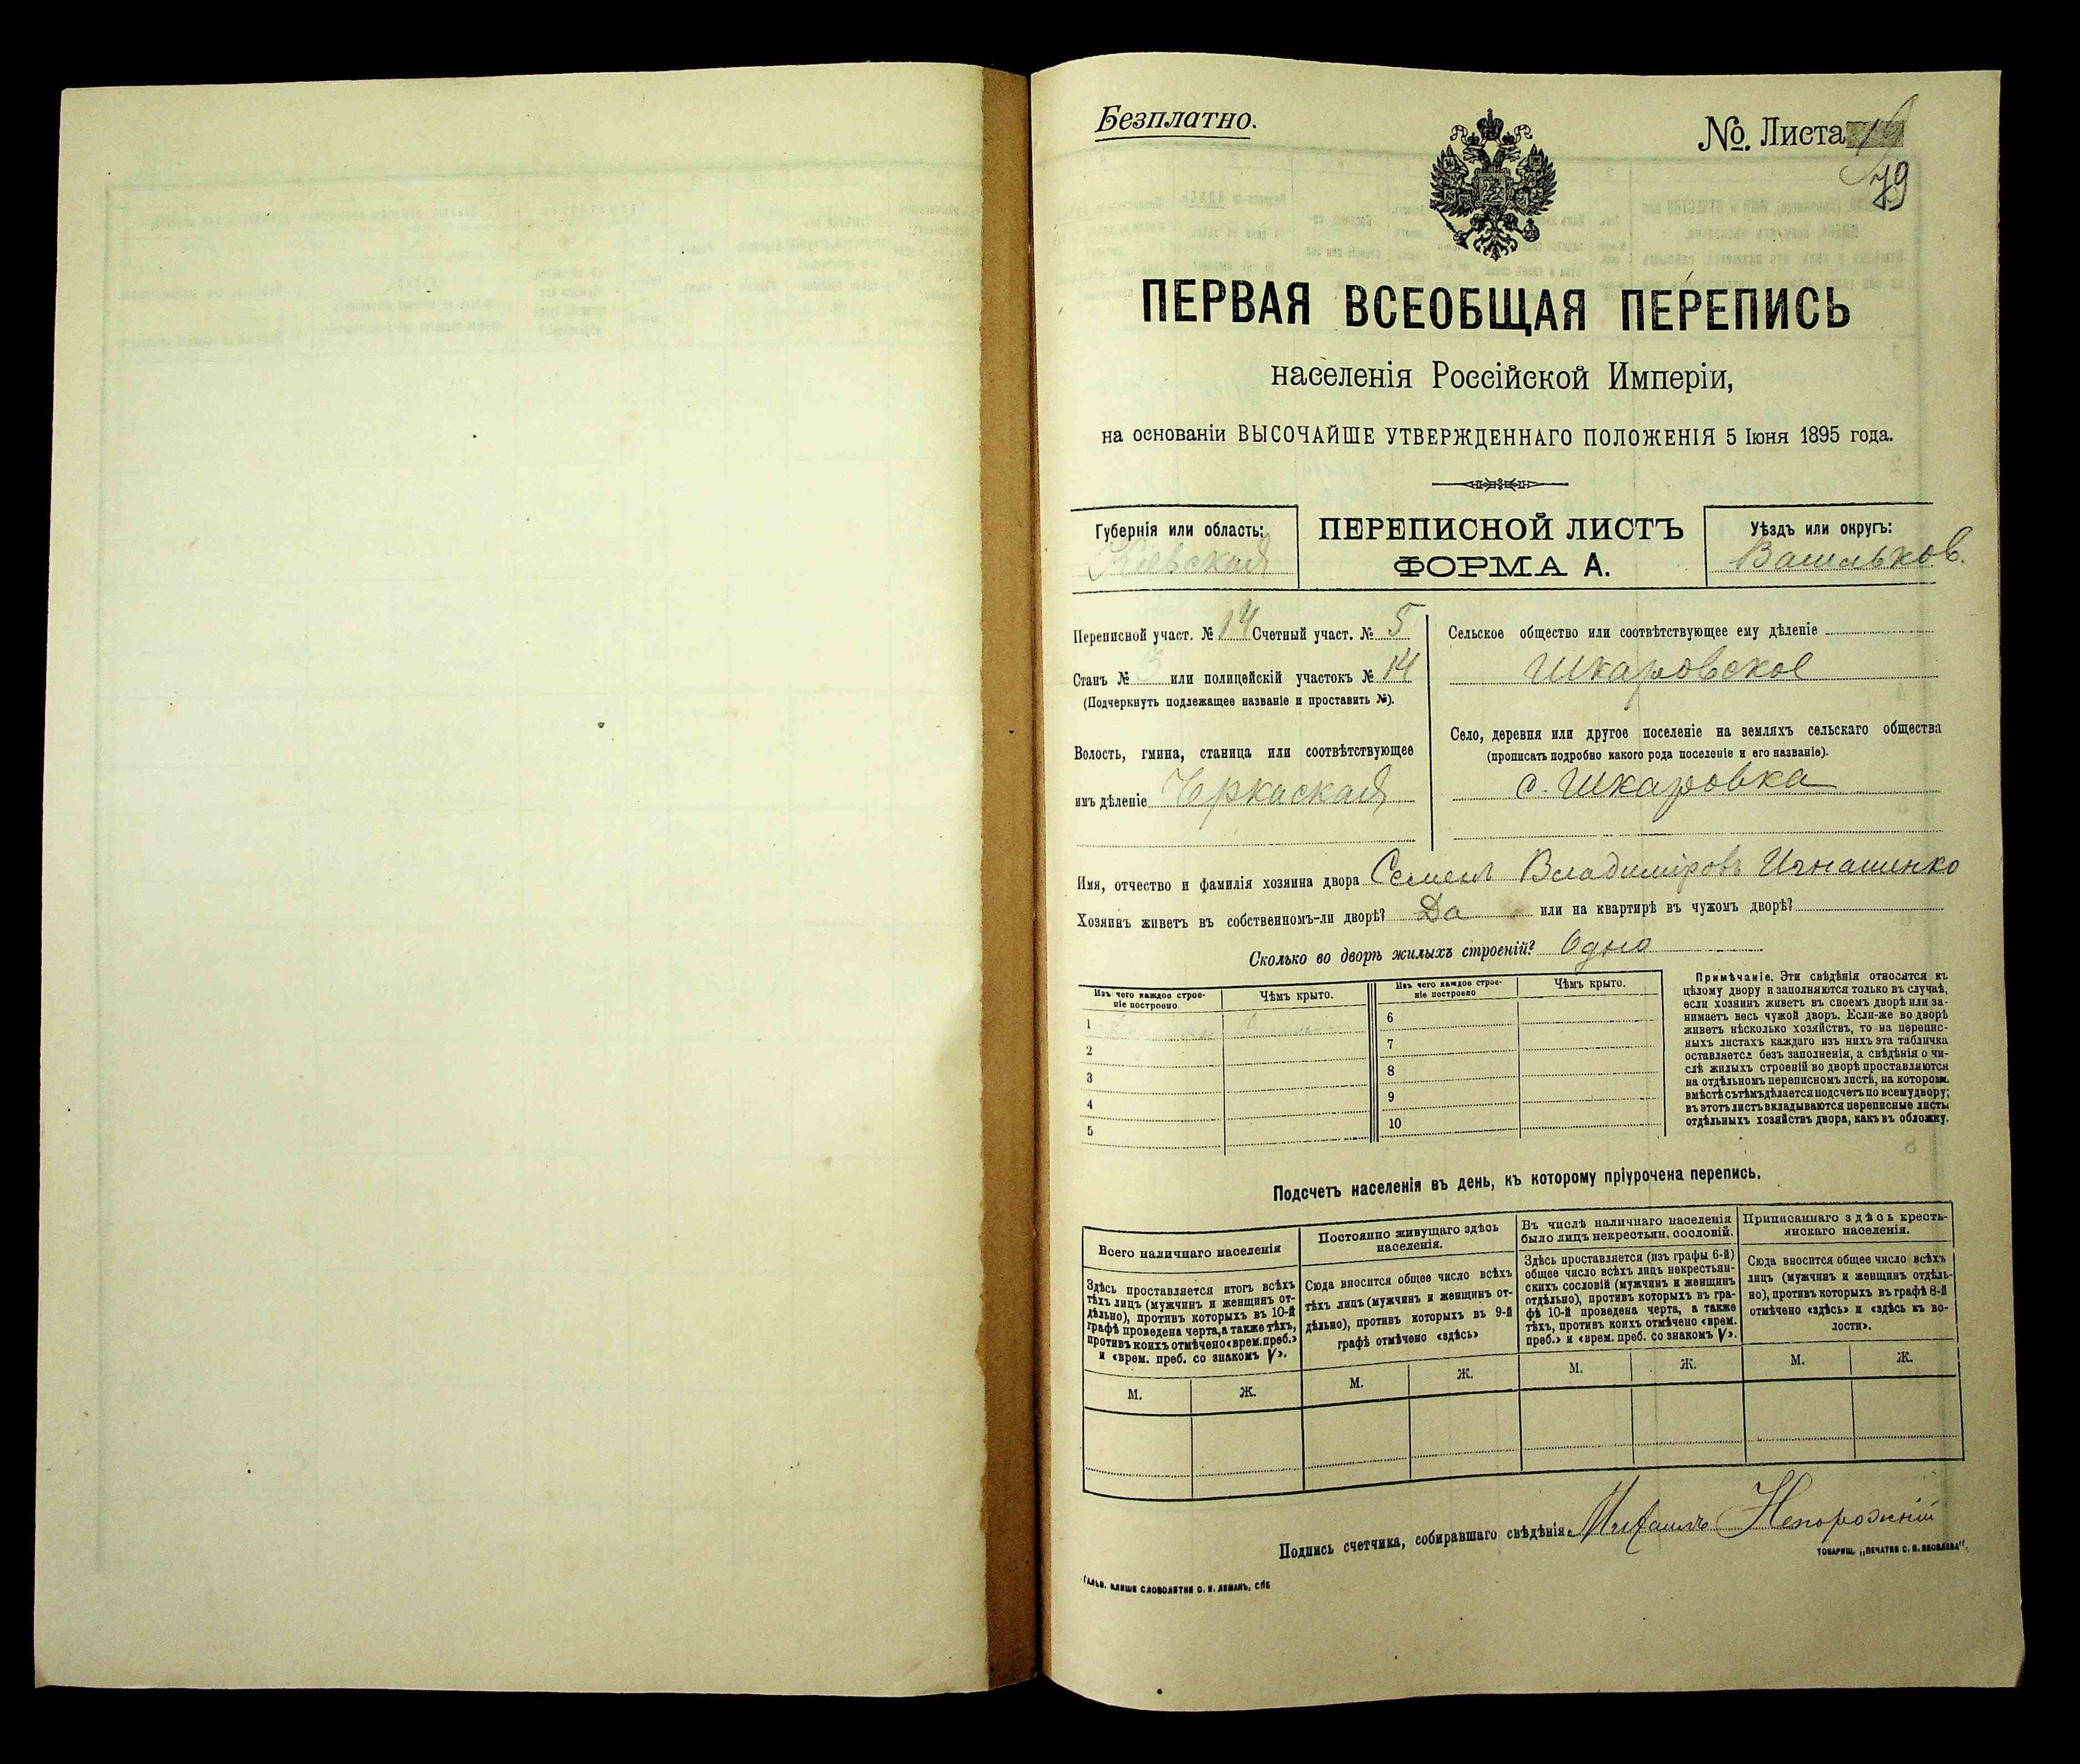 Безплатно.
№. Листа
79
ПЕРВАЯ ВСЕОБЩАЯ ПЕРЕПИСЬ
населенія Россійской Имперіи,
на основаніи ВЫСОЧАЙШЕ УТВЕРЖДЕННАГО ПОЛОЖЕНІЯ 5 Іюня 1895 года.
Губернія или область:
Кіевская
ПЕРЕПИСНОЙ ЛИСТЪ
ФОРМА А.
Уѣздъ или округъ:
Васильков.
Переписной участ. № 14 Счетный участ. № 5
Станъ № 3 или полицейскій участокъ № 14
(Подчеркнуть подлежащее названіе и проставить №).
Волость, гмина, станица или соотвѣтствующее
имъ дѣленіе Черкаская
Сельское общество или соотвѣтствующее ему дѣленіе
Шкаровское
Село, деревня или другое поселеніе на земляхъ сельскаго общества
(прописать подробно какого рода поселеніе и его названіе).
с. Шкаровка
Имя, отчество и фамилія хозяина двора Семенъ Владиміровъ Игнашенко
Хозяинъ живетъ въ собственномъ-ли дворѣ? Да или на квартирѣ въ чужомъ дворѣ?
Сколько во дворѣ жилыхъ строеній? Одно
Изъ чего каждое строе-
ніе построено
Чѣмъ крыто.
1
2
3
4
5
Изъ чего каждое строе-
ніе построено
Чѣмъ крыто.
6
7
8
9
10
Примѣчаніе. Эти свѣдѣнія относятся къ
цѣлому двору и заполняются только въ случаѣ,
если хозяинъ живетъ въ своемъ дворѣ или за-
нимаетъ весь чужой дворъ. Если-же во дворѣ
живетъ нѣсколько хозяйствъ, то на перепис-
ныхъ листахъ каждаго изъ нихъ эта табличка
оставляется безъ заполненія, а свѣдѣнія о чи-
слѣ жилыхъ строеній во дворѣ проставляются
на отдѣльномъ переписномъ листѣ, на которомъ
вмѣстѣ съ тѣмъ дѣлается подсчетъ по всему двору;
въ этотъ листъ вкладываются переписные листы
отдѣльныхъ хозяйствъ двора, какъ въ обложку.
Подсчетъ населенія въ день, къ которому пріурочена перепись.
Всего наличнаго населенія
Здѣсь проставляется итогъ всѣхъ
тѣхъ лицъ (мужчинъ и женщинъ от-
дѣльно), противъ которыхъ въ 10-й
графѣ проведена черта, а также тѣхъ,
противъ коихъ отмѣчено «врем. преб.»
и «врем. преб. со знакомъ V».
М. Ж.
Постоянно живущаго здѣсь
населенія.
Сюда вносится общее число всѣхъ
тѣхъ лицъ (мужчинъ и женщинъ от-
дѣльно), противъ которыхъ въ 9-й
графѣ отмѣчено «здѣсь»
М. Ж.
Въ числѣ наличнаго населенія
было лицъ некрестьян. сословій.
Здѣсь проставляется (изъ графы 6-й)
общее число всѣхъ лицъ некрестьян-
скихъ сословій (мужчинъ и женщинъ
отдѣльно), противъ которыхъ въ гра-
фѣ 10-й проведена черта, а также
тѣхъ, противъ коихъ отмѣчено «врем.
преб.» и «врем. преб. со знакомъ V».
М. Ж.
Приписаннаго здѣсь кресть-
янскаго населенія.
Сюда вносится общее число всѣхъ
лицъ (мужчинъ и женщинъ отдѣль-
но), противъ которыхъ въ графѣ 8-й
отмѣчено «здѣсь» и «здѣсь къ во-
лости».
М. Ж.
Подпись счетчика, собиравшаго свѣдѣнія. Михаилъ Непорожній
ТОВАРИЩ. „ПЕЧАТНЯ С. П. ЯКОВЛЕВА".
ГАЛЬВ. КЛИШЕ СЛОВОЛИТНИ О. И. ЛЕМАНЪ, СПБ